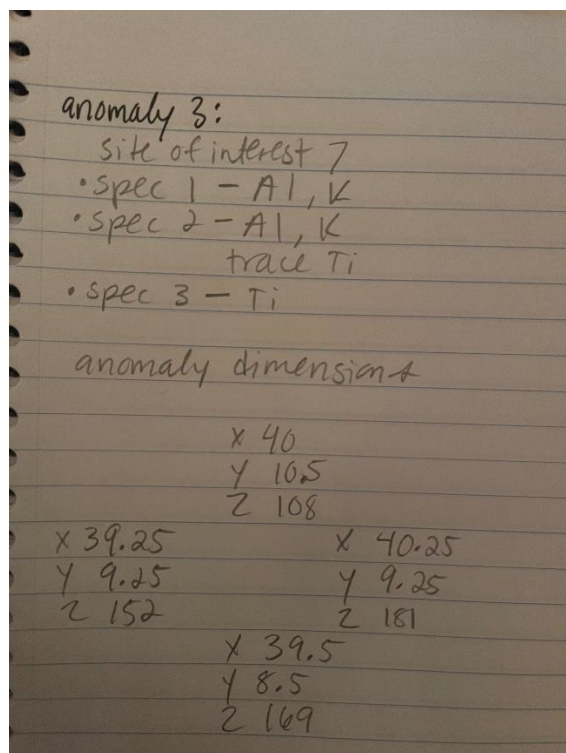 anomaly 3:
site of interest 7
• spec 1 - Al, K
• spec 2 - Al, K
trace Ti
• spec 3 - Ti
anomaly dimensions
X 40
Y 10.5
Z 108
X 39.25
Y 9.25
Z 152
X 40.25
Y 9.25
Z 181
X 39.5
Y 8.5
Z 169